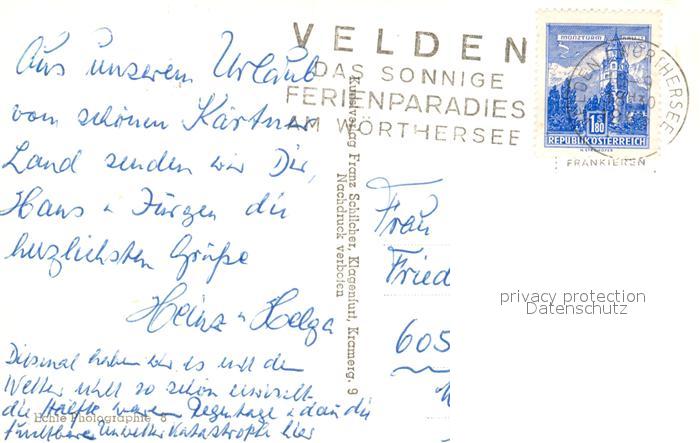 Aus unserem Urlaub
vom schönen Kärtner
Land senden wir Dir,
Hans u Jürgen die
herzlichsten Grüße
Heinz u Helga
Diesmal haben wir es mit dem
Wetter nicht so schön erwischt
die Hälfte waren Regentage u dan die
furchtbare Unwetterkatastrophe hier
Echte Photographie
Kunstverlag Franz Schilcher, Klagenfurt, Kramerg. 9
Nachdruck verboten
VELDEN
DAS SONNIGE
FERIENPARADIES
AM WÖRTHERSEE
MÜNZTURM
1.80
REPUBLIK ÖSTERREICH
VELDEN WÖRTHERSEE
FRANKIEREN
Frau
Fried
605
privacy protection
Datenschutz